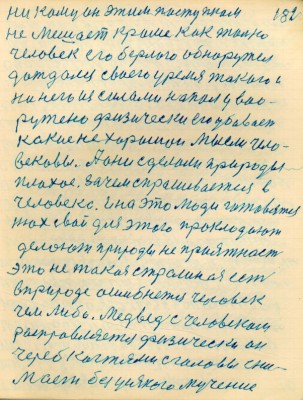 ни кому он этим поступком 182
не мешает кроме как только
человек его берлого обнаружел
дождался своего уремя такого и
на него из силами напал у воо-
ружено физически его убивает
какие не хорошии мысли чело-
вековы. А они сделали природы
плохое. Зачем спрашивается в
человеко. и на это люди готовятся
свой для этого прокладают
делают природы не приятност
это не такая страшная есть
в природе ошибнется человек
чем либо. Медвед с человеком
расправляется физически он
через когтями с головы сни-
мает без уякого мучение